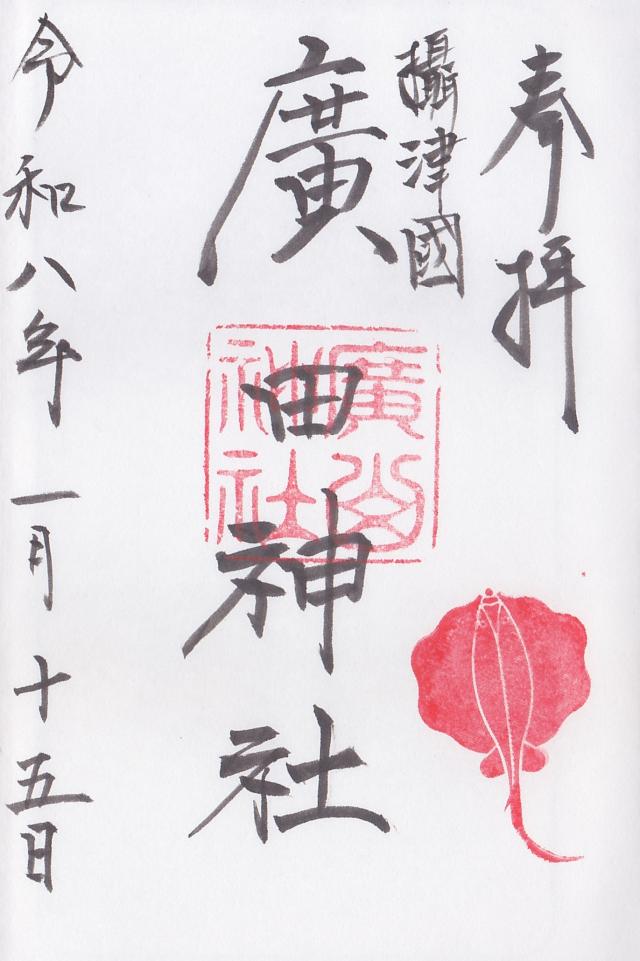 奉拝
攝津國
廣田神社
廣
神社
令和八年一月十五日